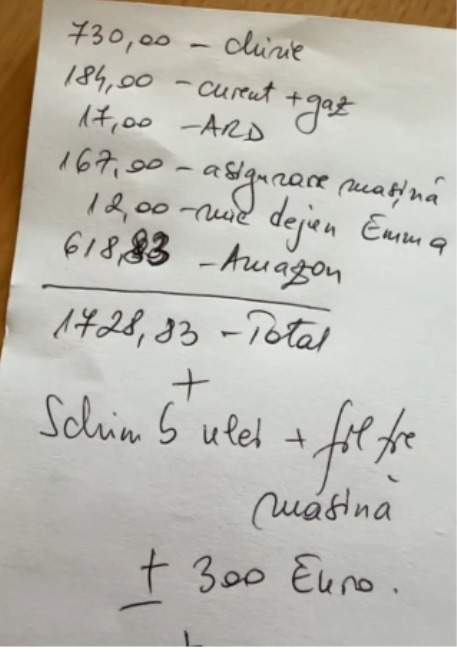 730,00 - chirie
184,00 - curent + gaz
17,00 - ARD
167,00 - asigurare mașină
12,00 - mic dejun Emma
618,83 - Amazon
1728,83 - Total
+
Schimb ulei + filtre
mașină
± 300 Euro.